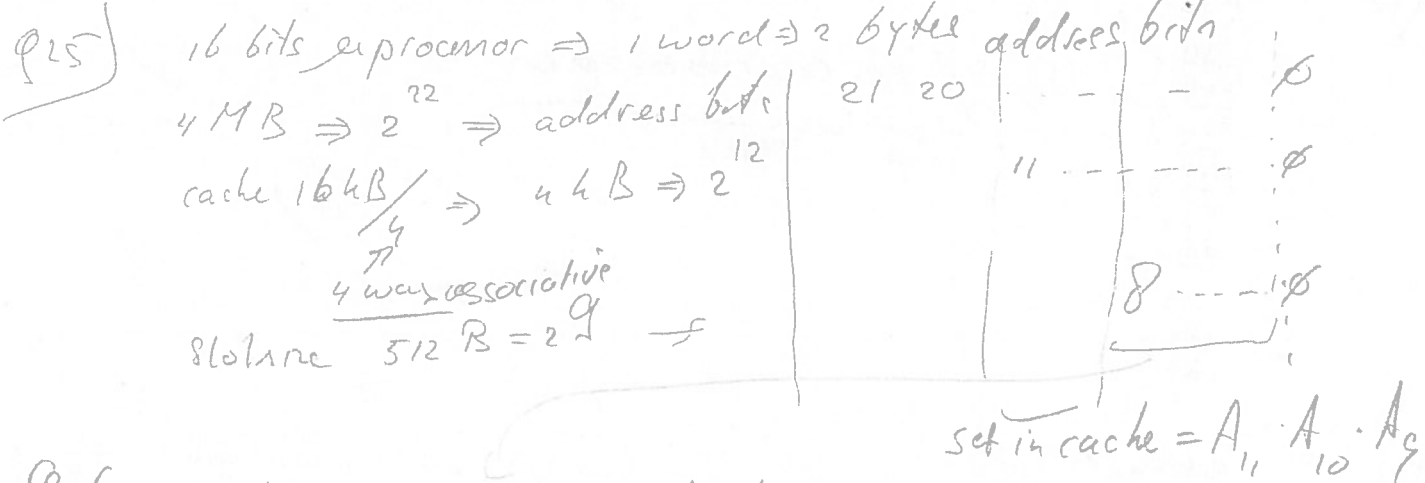 Q25) 16 bits μprocessor ⇒ 1 word ⇒ 2 bytes address bits
4 MB ⇒ 2^22 ⇒ address bits 21 20 . - - 0
cache 16kB/4 ⇒ 4 kB ⇒ 2^12 11 - - - - - - 0
4 way associative
512 B = 2^9 ⇒ 8 - - - - 0
set in cache = A11 . A10 . A9